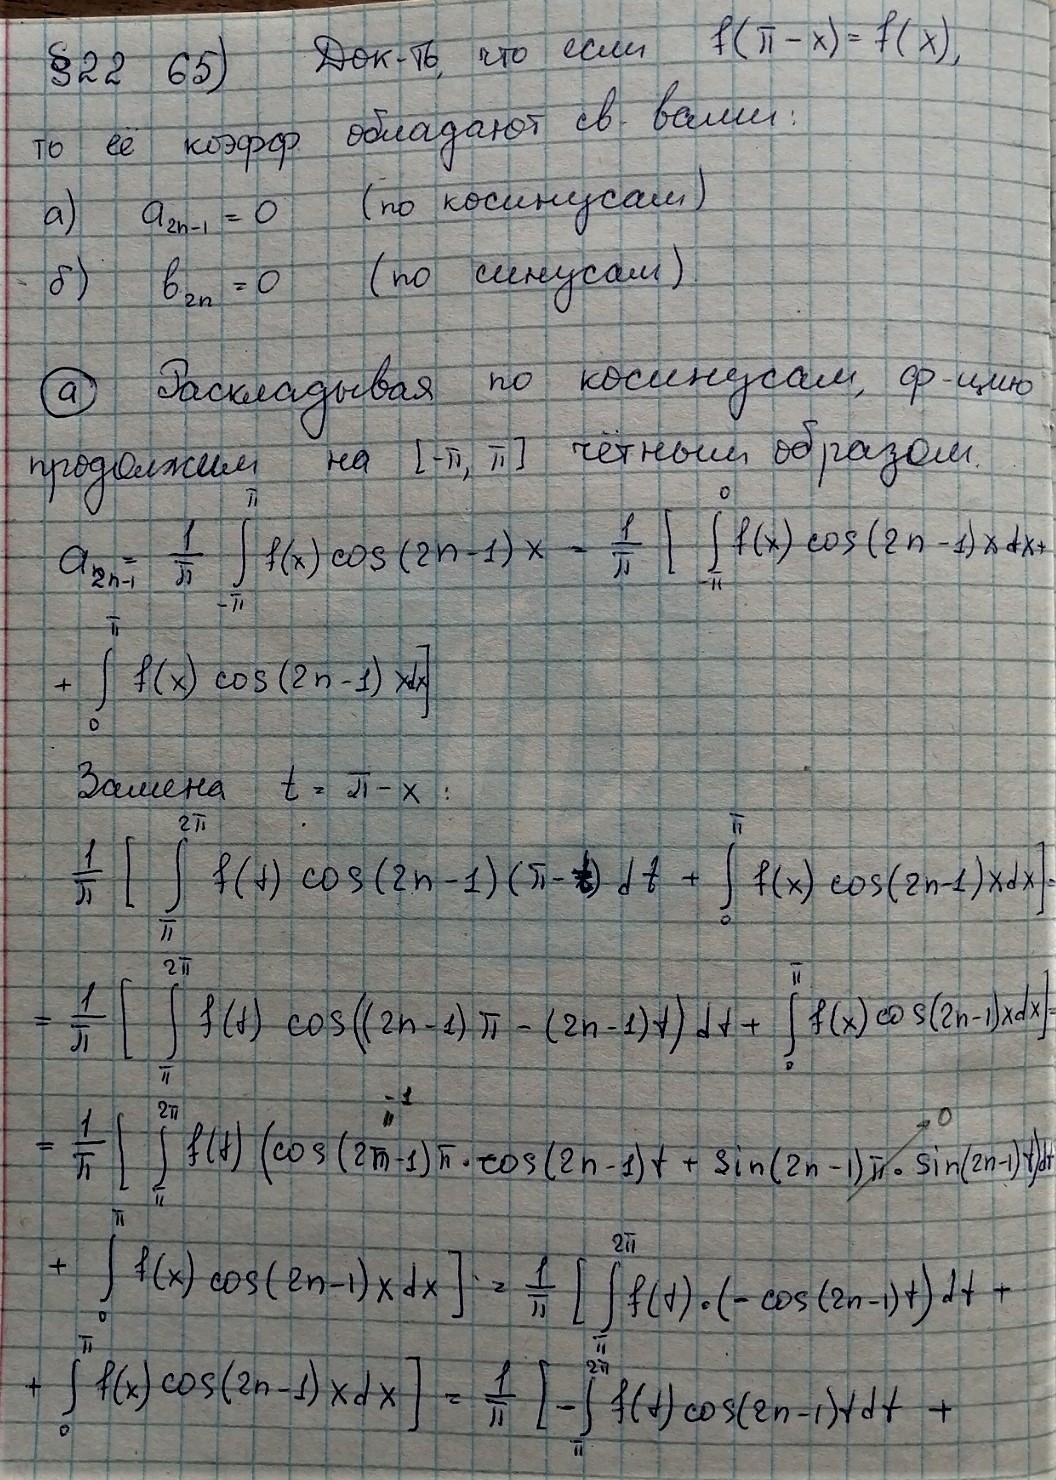 §22 65) Док-ть, что если f(π-x)=f(x),
то её коэфф обладают св-вами:
а) a₂ₙ₋₁ = 0 (по косинусам)
б) b₂ₙ = 0 (по синусам)
а) Раскладывая по косинусам, ф-цию
продолжим на [-π, π] чётным образом.
a₂ₙ₋₁ = 1/π ∫_{-π}^{π} f(x) cos(2n-1)x = 1/π [ ∫_{-π}^{0} f(x) cos(2n-1)x dx +
+ ∫_{0}^{π} f(x) cos(2n-1)x dx]
Замена t = π-x :
1/π [ ∫_{π}^{2π} f(t) cos(2n-1)(π-t) dt + ∫_{0}^{π} f(x) cos(2n-1)x dx] =
= 1/π [ ∫_{π}^{2π} f(t) cos((2n-1)π - (2n-1)t) dt + ∫_{0}^{π} f(x) cos(2n-1)x dx] =
-1
= 1/π [ ∫_{π}^{2π} f(t) (cos(2n-1)π · cos(2n-1)t + sin(2n-1)π · sin(2n-1)t) dt → 0
+ ∫_{0}^{π} f(x) cos(2n-1)x dx ] = 1/π [ ∫_{π}^{2π} f(t) · (-cos(2n-1)t) dt +
+ ∫_{0}^{π} f(x) cos(2n-1)x dx ] = 1/π [ - ∫_{π}^{2π} f(t) cos(2n-1)t dt +